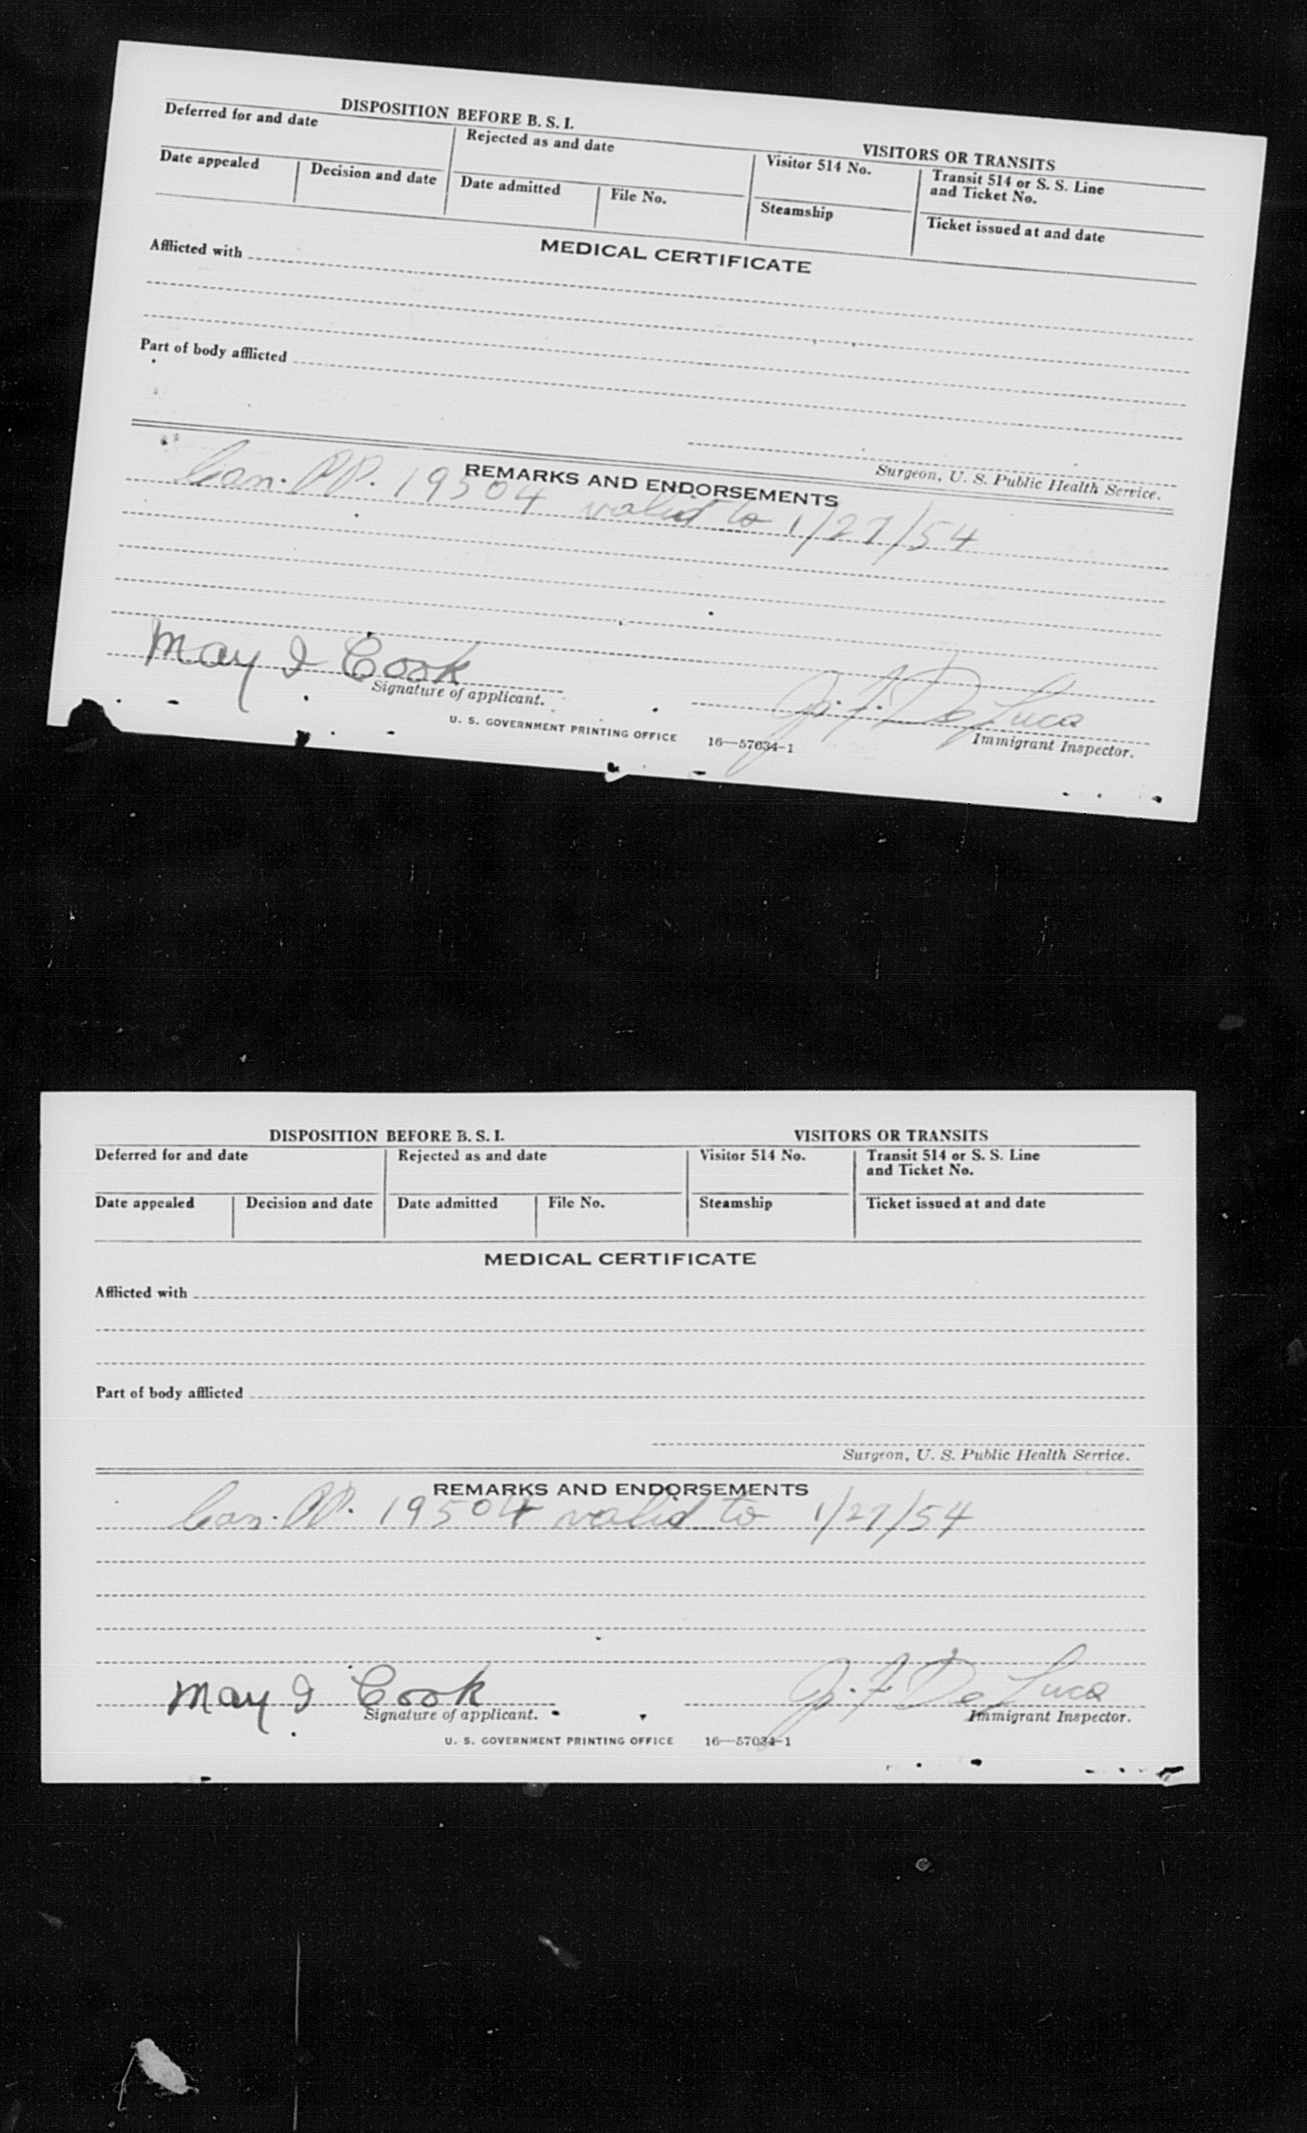 DISPOSITION BEFORE B. S. I.
VISITORS OR TRANSITS
Deferred for and date
Rejected as and date
Visitor 514 No.
Transit 514 or S. S. Line
and Ticket No.
Date appealed
Decision and date
Date admitted
File No.
Steamship
Ticket issued at and date
MEDICAL CERTIFICATE
Afflicted with
Part of body afflicted
Surgeon, U. S. Public Health Service.
REMARKS AND ENDORSEMENTS
Can. PP. 19504 valid to 1/27/54
May I Cook
Signature of applicant.
J. F. De Luca
Immigrant Inspector.
U. S. GOVERNMENT PRINTING OFFICE 16—57034-1
DISPOSITION BEFORE B. S. I.
VISITORS OR TRANSITS
Deferred for and date
Rejected as and date
Visitor 514 No.
Transit 514 or S. S. Line
and Ticket No.
Date appealed
Decision and date
Date admitted
File No.
Steamship
Ticket issued at and date
MEDICAL CERTIFICATE
Afflicted with
Part of body afflicted
Surgeon, U. S. Public Health Service.
REMARKS AND ENDORSEMENTS
Can. PP. 19504 valid to 1/27/54
May I Cook
Signature of applicant.
J. F. De Luca
Immigrant Inspector.
U. S. GOVERNMENT PRINTING OFFICE 16—57034-1